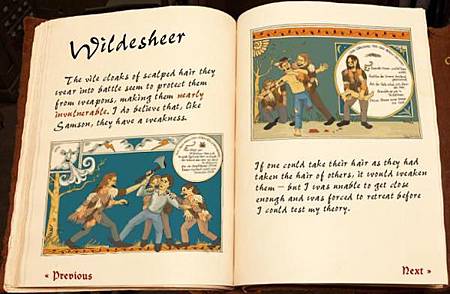 Wildesheer
The vile cloaks of scalped hair they
wear into battle seem to protect them
from weapons, making them nearly
invulnerable. I do believe that, like
Samson, they have a weakness.
« Previous
If one could take their hair as they had
taken the hair of others, it would weaken
them – but I was unable to get close
enough and was forced to retreat before
I could test my theory.
Next »